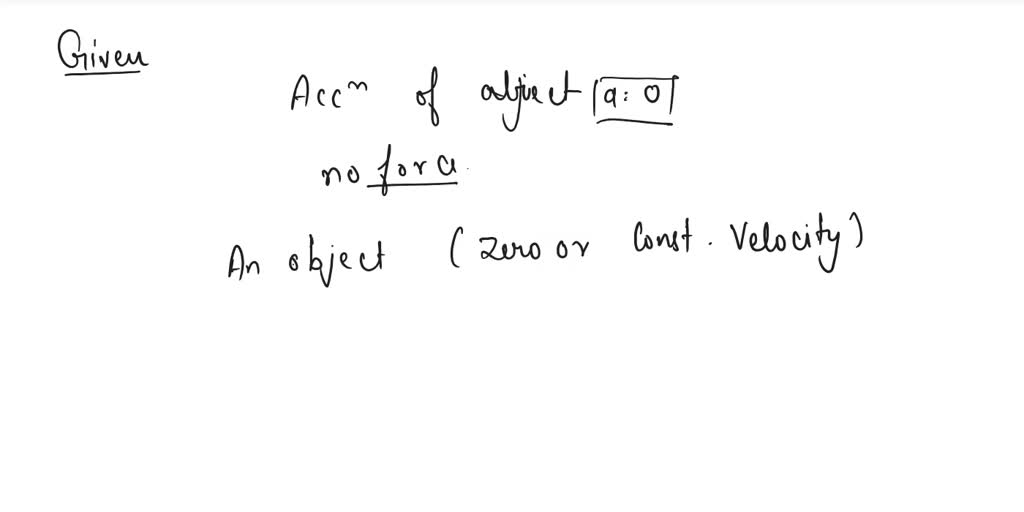 Given
Accⁿ of object a: 0
no force
An object (zero or Const. Velocity)